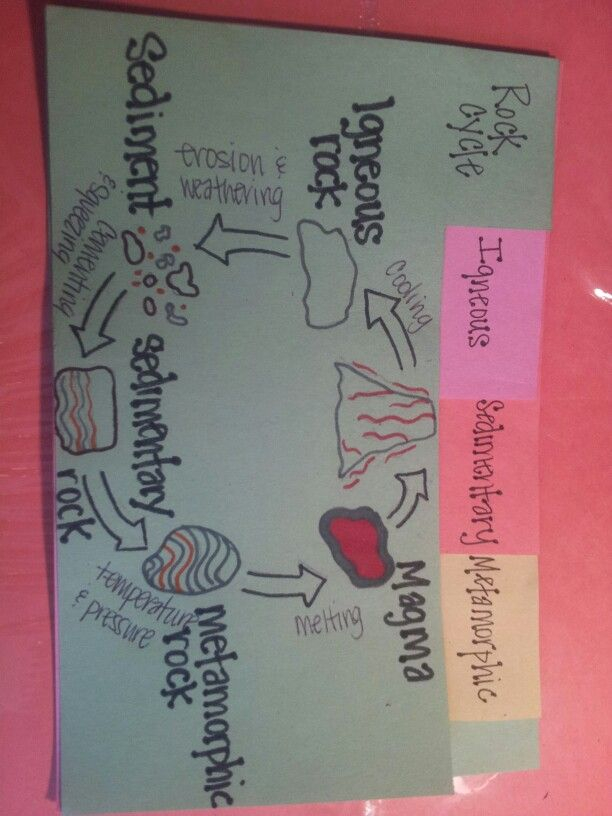 Rock
cycle
Igneous
Sedimentary
Metamorphic
Igneous
rock
cooling
erosion &
weathering
Sediment
cementing
& squeezing
sedimentary
rock
temperature
& pressure
metamorphic
rock
melting
Magma